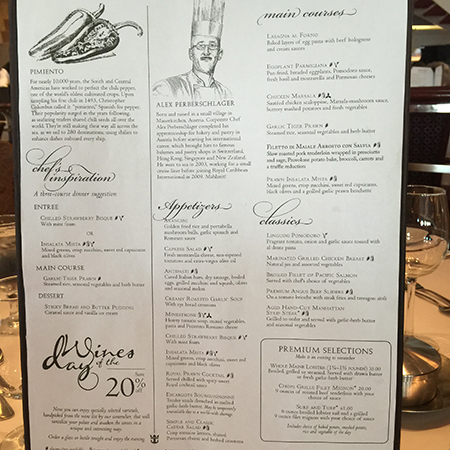 PIMIENTO
For nearly 10,000 years, the South and Central
Americans have worked to perfect the chile pepper,
one of the world's oldest cultivated crops. Upon
sampling his first chile in 1493, Christopher
Columbus called it "pimiento," Spanish for pepper.
Their popularity surged in the years following,
as seafaring traders shared chile seeds all over the
world. They're still making their way all across the
sea, as we sail to 280 destinations, using chiles to
enhance dishes onboard every ship.
chef's
inspiration
A three-course dinner suggestion
ENTREE
CHILLED STRAWBERRY BISQUE
With mint foam
OR
INSALATA MISTA
Mixed greens, crispy zucchini, sweet red capsicums
and black olives
MAIN COURSE
GARLIC TIGER PRAWN
Steamed rice, seasonal vegetables and herb butter
DESSERT
STICKY BREAD AND BUTTER PUDDING
Creamed raisin and vanilla ice cream
Wines
of the
day
Save
20%
Now you can enjoy specially selected varietals,
handpicked from the wine list by our sommelier, that will
tantalize your palate and awaken the senses in a
unique and interesting way.
Order a glass or bottle tonight and enjoy the evening
ALEX PERBERSCHLAGER
Born and raised in a small village in
Mauerkirchen, Austria, Corporate Chef
Alex Perberschlager completed his
apprenticeship for bakery and pastry in
Austria before starting his international
career, which brought him to famous
bakeries and pastry shops in Switzerland,
Hong Kong, Singapore and New Zealand.
He went to sea in 2003, working for a small
cruise liner before joining Royal Caribbean
International in 2009. Mahlzeit!
Appetizers
ARANCINI
Golden fried rice and portabella
mushroom balls, garlic spinach and
Romesco sauce
CAPRESE SALAD
Fresh mozzarella cheese, sun-ripened
tomatoes and extra-virgin olive oil
ANTIPASTI
Cured Italian ham, dry sausage, boiled
egg, grilled zucchini and squash, olives
and seasonal melon
CREAMY ROASTED GARLIC SOUP
With rye bread croutons
MINESTRONE
Hearty tomato soup, mixed vegetables,
pasta and Pecorino Romano cheese
CHILLED STRAWBERRY BISQUE
With mint foam
INSALATA MISTA
Mixed greens, crisp zucchini, sweet
red capsicums and black olives
ROYAL PRAWN COCKTAIL
Served chilled with spicy sweet
Royal Caribbean cocktail sauce
ESCARGOTS BOURGUIGNONNE
Tender snails drenched in melted
garlic-herb butter.
SIMPLE AND CLASSIC
CAESAR SALAD
Crisp romaine lettuce, shaved
Parmesan cheese and herbed croutons
main courses
LASAGNA AL FORNO
Baked layers of egg pasta with beef bolognese
and cream sauces
EGGPLANT PARMIGIANA
Pan-fried, breaded eggplants, Pomodoro sauce,
fresh basil and mozzarella and Parmesan cheeses
CHICKEN MARSALA
Sautéed chicken scaloppine, Marsala-mushroom sauce,
buttery mashed potatoes and fresh vegetables
GARLIC TIGER PRAWN
Steamed rice, seasonal vegetables and herb butter
FILETTO DI MAIALE ARROSTO CON SALVIA
Slow roasted pork tenderloin wrapped in prosciutto
and sage, Provolone potato bake, broccoli, carrots and
a truffle reduction
PRAWN INSALATA MISTA
Mixed greens, crispy zucchini, sweet red capsicums,
black olives and a grilled garlic prawn skewer
classics
LINGUINI POMODORO
Fragrant tomato, onion and garlic sauce tossed with al
dente pasta
MARINATED GRILLED CHICKEN BREAST
Natural jus and assorted vegetables
BROILED FILLET OF PACIFIC SALMON
Served with chef's choice of vegetables
PREMIUM ANGUS BEEF SLIDERS
On a tomato brioche with steak fries and tarragon aioli
AGED HAND-CUT MANHATTAN
STRIP STEAK
Grilled to order and served with garlic-herb butter
and seasonal vegetables
PREMIUM SELECTIONS
Made is an evening to remember
WHOLE MAINE LOBSTER
Broiled, grilled or steamed. Served with drawn butter
or fresh garlic-herb butter
CHOPS GRILLE FILET MIGNON 20.00
9 ounces of roasted beef tenderloin with your
choice of sauce.
SURF AND TURF
8 ounce broiled lobster tail and a grilled
9 ounce filet mignon with fresh roasted garlic
Includes choice of baked potato, mashed potato,
rice and vegetable of the day